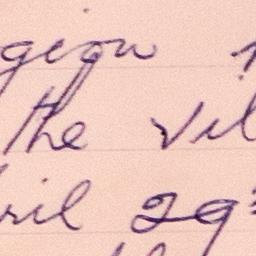 gion
the vil
ril 29